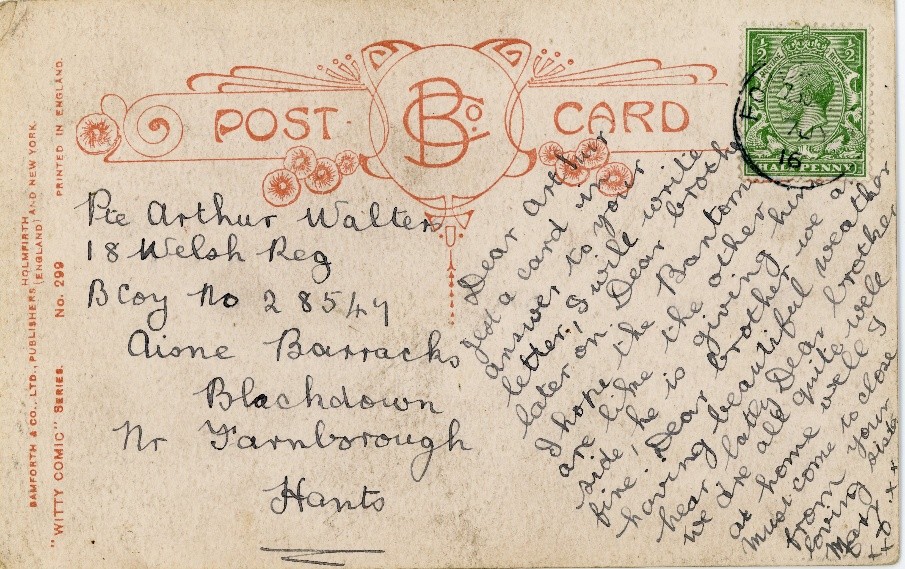 POST CARD
BCo.
½ ½
HALFPENNY
16
BAMFORTH & CO., LTD., PUBLISHERS HOLMFIRTH (ENGLAND) AND NEW YORK.
"WITTY COMIC" SERIES. No. 299 PRINTED IN ENGLAND.
Pte Arthur Walters
18 Welsh Reg
B Coy No 28547
Aisne Barracks
Blackdown
Nr Farnborough
Hants
Dear Arthur
Just a card in
answer to your
letter, I will write
later on Dear brother
I hope the Bantoms
are like the other
side, he is giving him
fine. Dear brother we a
having beautiful weather
hear latly Dear brother
we are all quite well
at home well I
must come to close
from your
loving sister
Mary